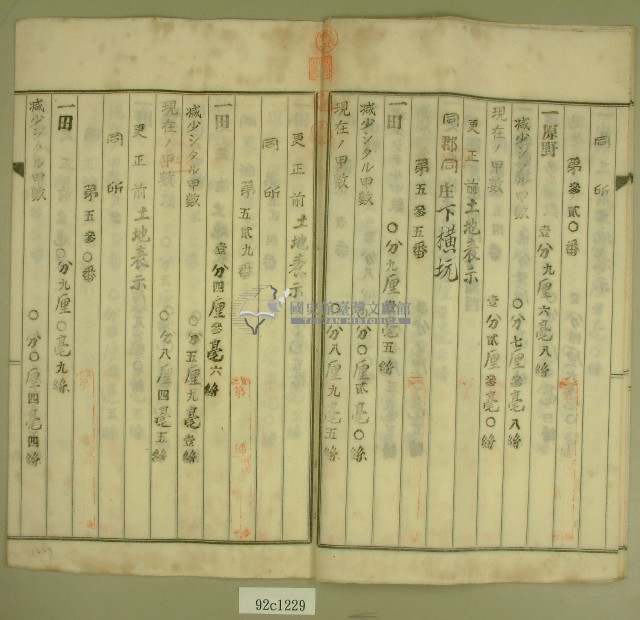 同所
第參貳〇番
一原野 壹分九厘六毫八絲
減少シタル甲數 〇分七厘參毫八絲
現在ノ甲數 壹分貳厘參毫〇絲
更正前土地表示
同郡同庄下橫坑
第五參五番
一田 〇分九厘壹毫五絲
減少シタル甲數 〇分〇厘貳毫〇絲
現在ノ甲數 〇分八厘九毫五絲
更正前土地表示
同所
第五貳九番
一田 壹分四厘參毫六絲
減少シタル甲數 〇分五厘九毫壹絲
現在ノ甲數 〇分八厘四毫五絲
更正前土地表示
同所
第五參〇番
一田 〇分九厘〇毫九絲
減少シタル甲數 〇分〇厘四毫四絲
國史館臺灣文獻館
TAIWAN HISTORICA
92c1229